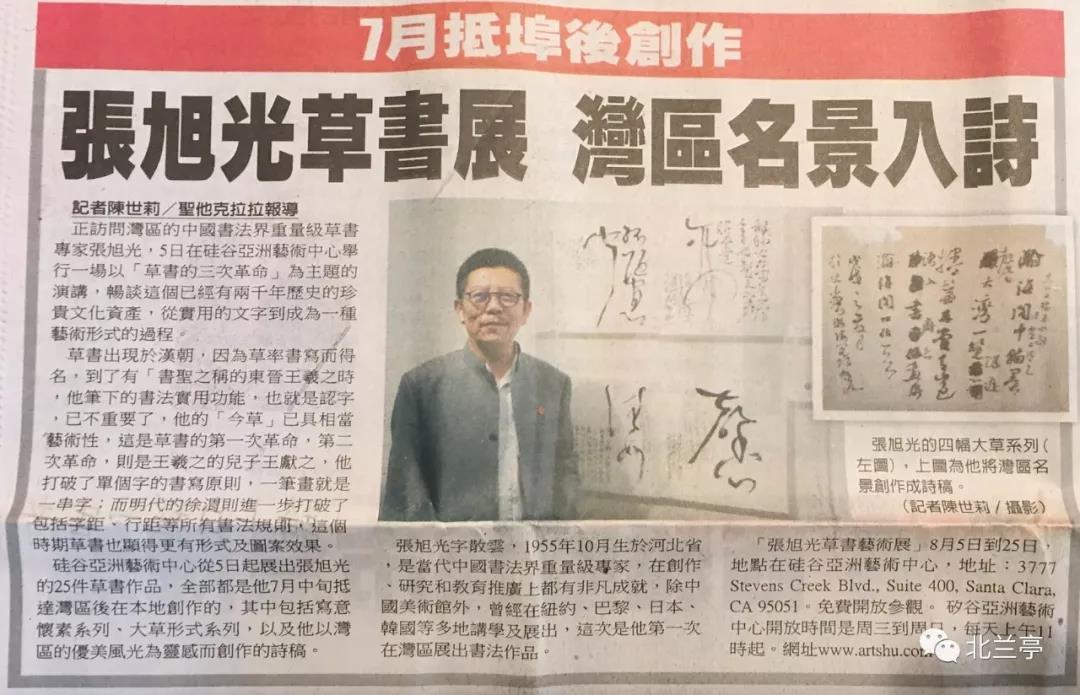 7月抵埠後創作
張旭光草書展 灣區名景入詩
記者陳世莉／聖他克拉拉報導
正訪問灣區的中國書法界重量級草書
專家張旭光，5日在硅谷亞洲藝術中心舉
行一場以「草書的三次革命」為主題的
演講，暢談這個已經有兩千年歷史的珍
貴文化資產，從實用的文字到成為一種
藝術形式的過程。
草書出現於漢朝，因為草率書寫而得
名，到了有「書聖之稱的東晉王羲之時
，他筆下的書法實用功能，也就是認字，
已不重要了，他的「今草」已具相當
藝術性，這是草書的第一次革命，第二
次革命，則是王羲之的兒子王獻之，他
打破了單個字的書寫原則，一筆畫就是
一串字；而明代的徐渭則進一步打破了
包括字距、行距等所有書法規則，這個
時期草書也顯得更有形式及圖案效果。
硅谷亞洲藝術中心從5日起展出張旭光
的25件草書作品，全部都是他7月中旬抵
達灣區後在本地創作的，其中包括寫意
懷素系列、大草形式系列，以及他以灣
區的優美風光為靈感而創作的詩稿。
張旭光的四幅大草系列（
左圖），上圖為他將灣區名
景創作成詩稿。
（記者陳世莉／攝影）
張旭光字散雲，1955年10月生於河北省
，是當代中國書法界重量級專家，在創作
、研究和教育推廣上都有非凡成就，除中
國美術館外，曾經在紐約、巴黎、日本、
韓國等多地講學及展出，這次是他第一次
在灣區展出書法作品。
「張旭光草書藝術展」8月5日到25日，
地點在硅谷亞洲藝術中心，地址：3777
Stevens Creek Blvd., Suite 400, Santa Clara,
CA 95051。免費開放參觀。矽谷亞洲藝術
中心開放時間是周三到周日，每天上午11
時起。網址www.artshu.com
北兰亭